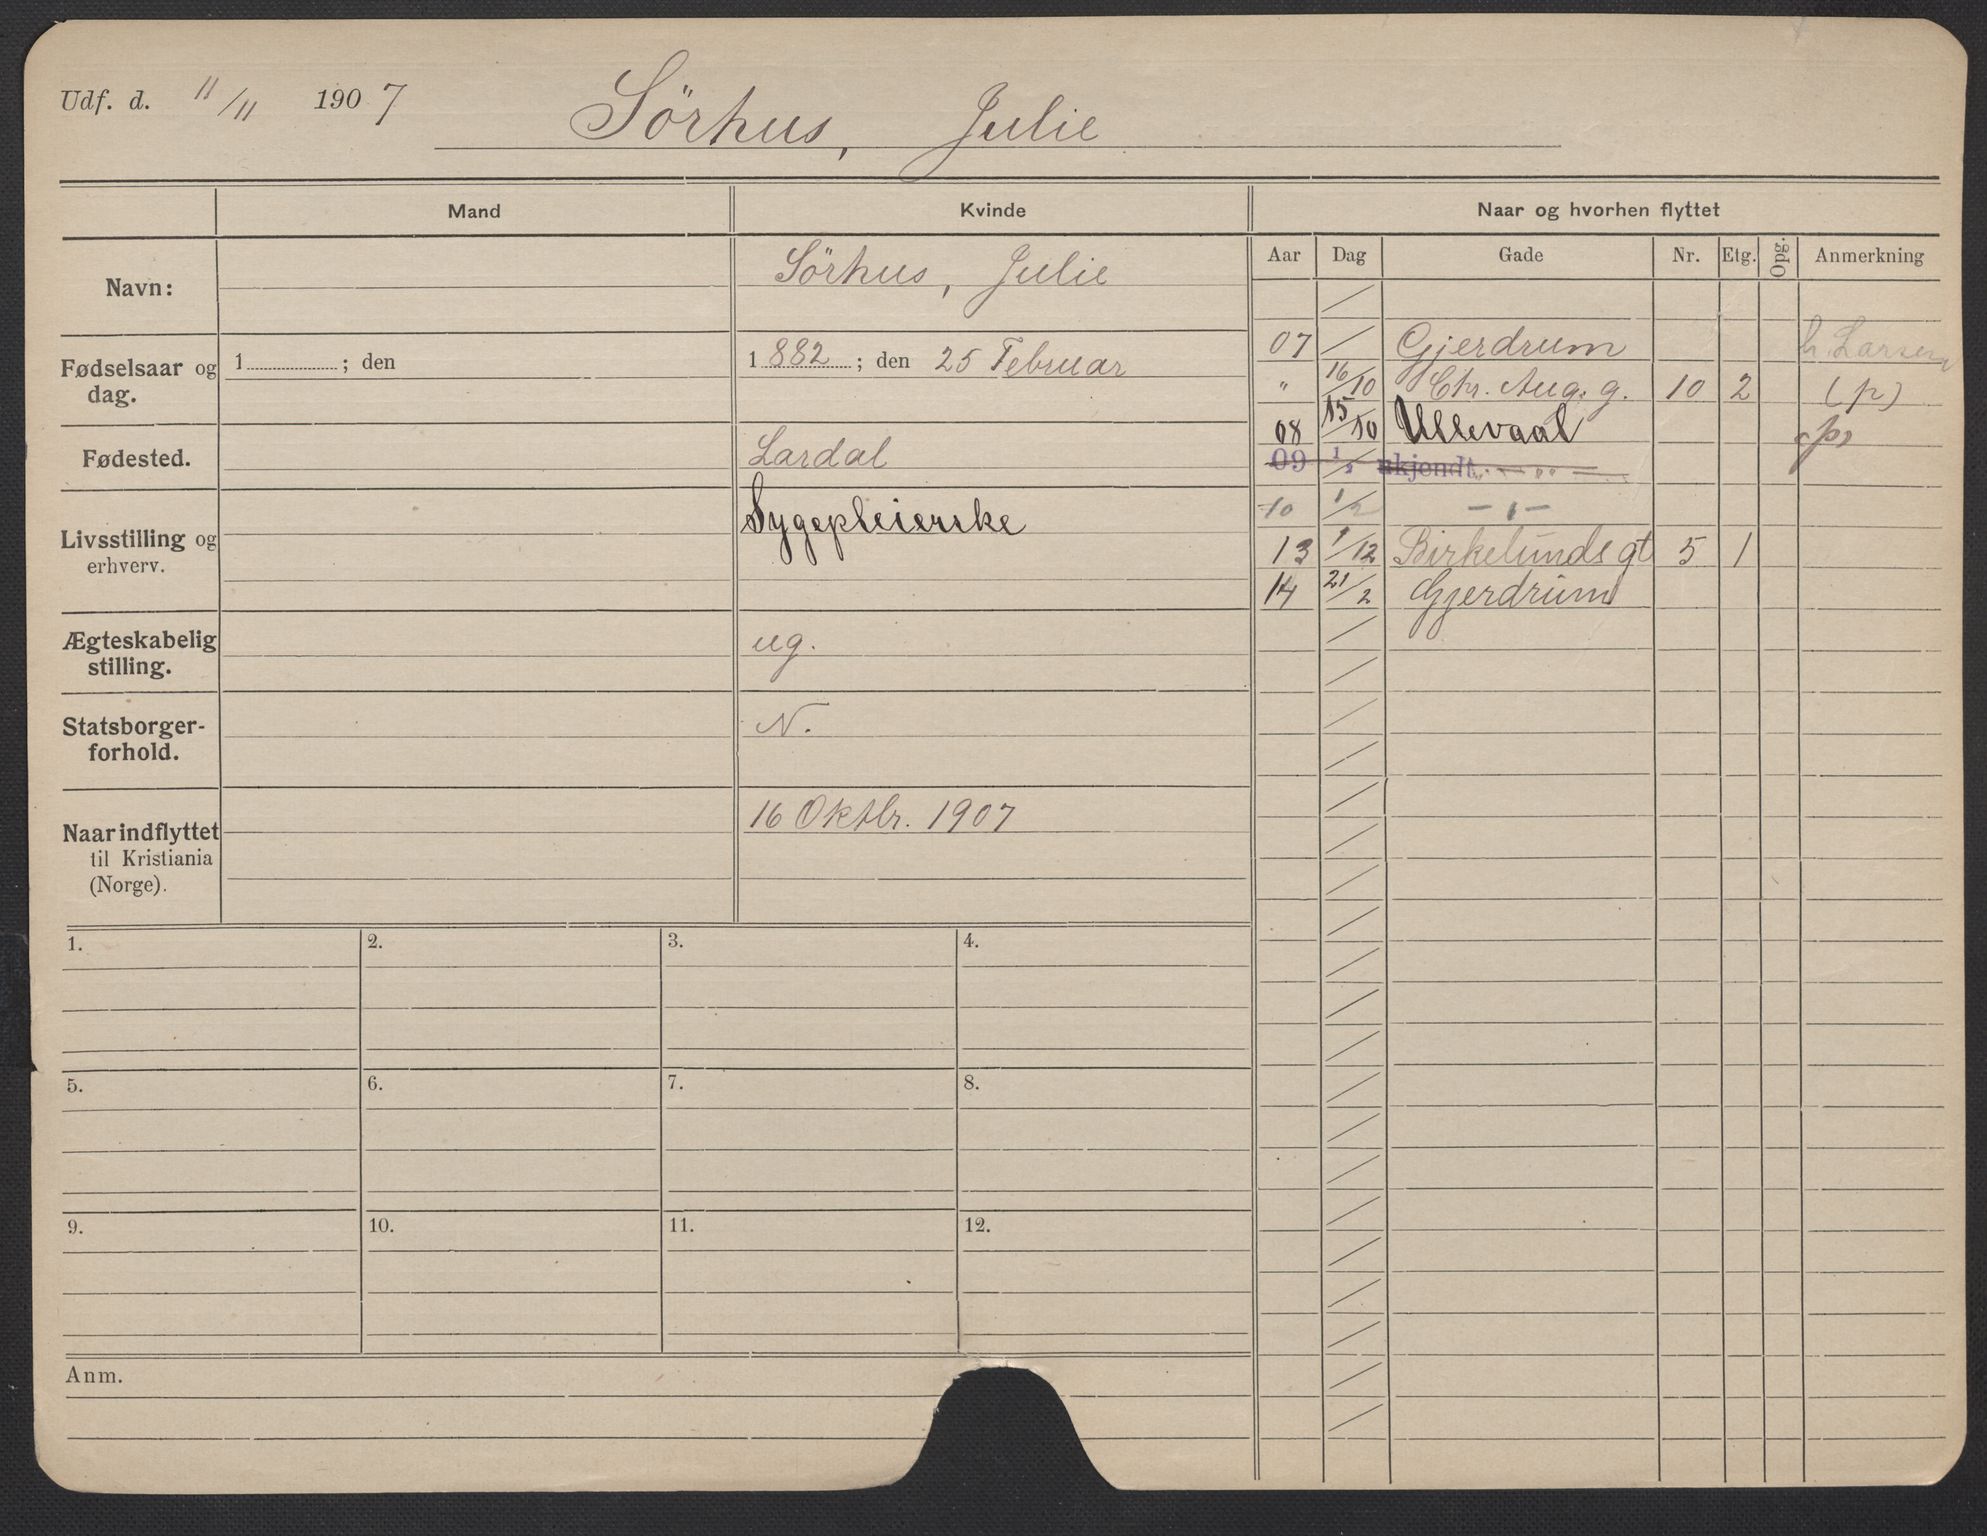 Udf. d. 11/11 1907 Sörhus, Julie
Mand Kvinde Naar og hvorhen flyttet
Aar Dag Gade Nr. Etg. Opg. Anmerkning
Navn: Sörhus, Julie
Fødselsaar og dag. 1 ; den 1882 ; den 25 Februar
Fødested. Lardal
Livsstilling og erhverv. Sygepleierske
Ægteskabelig stilling. ug.
Statsborgerforhold. N.
Naar indflyttet til Kristiania (Norge). 16 Oktbr. 1907
07 / Gjerdrum h. Larsen
" 16/10 Chr. Aug. g. 10 2 (p)
08 15/10 Ullevaal (p)
09 1/2 ukjendt
10 1/2 — „ —
13 1/12 Birkelunds gt 5 1
14 21/2 Gjerdrum
1. 2. 3. 4.
5. 6. 7. 8.
9. 10. 11. 12.
Anm.